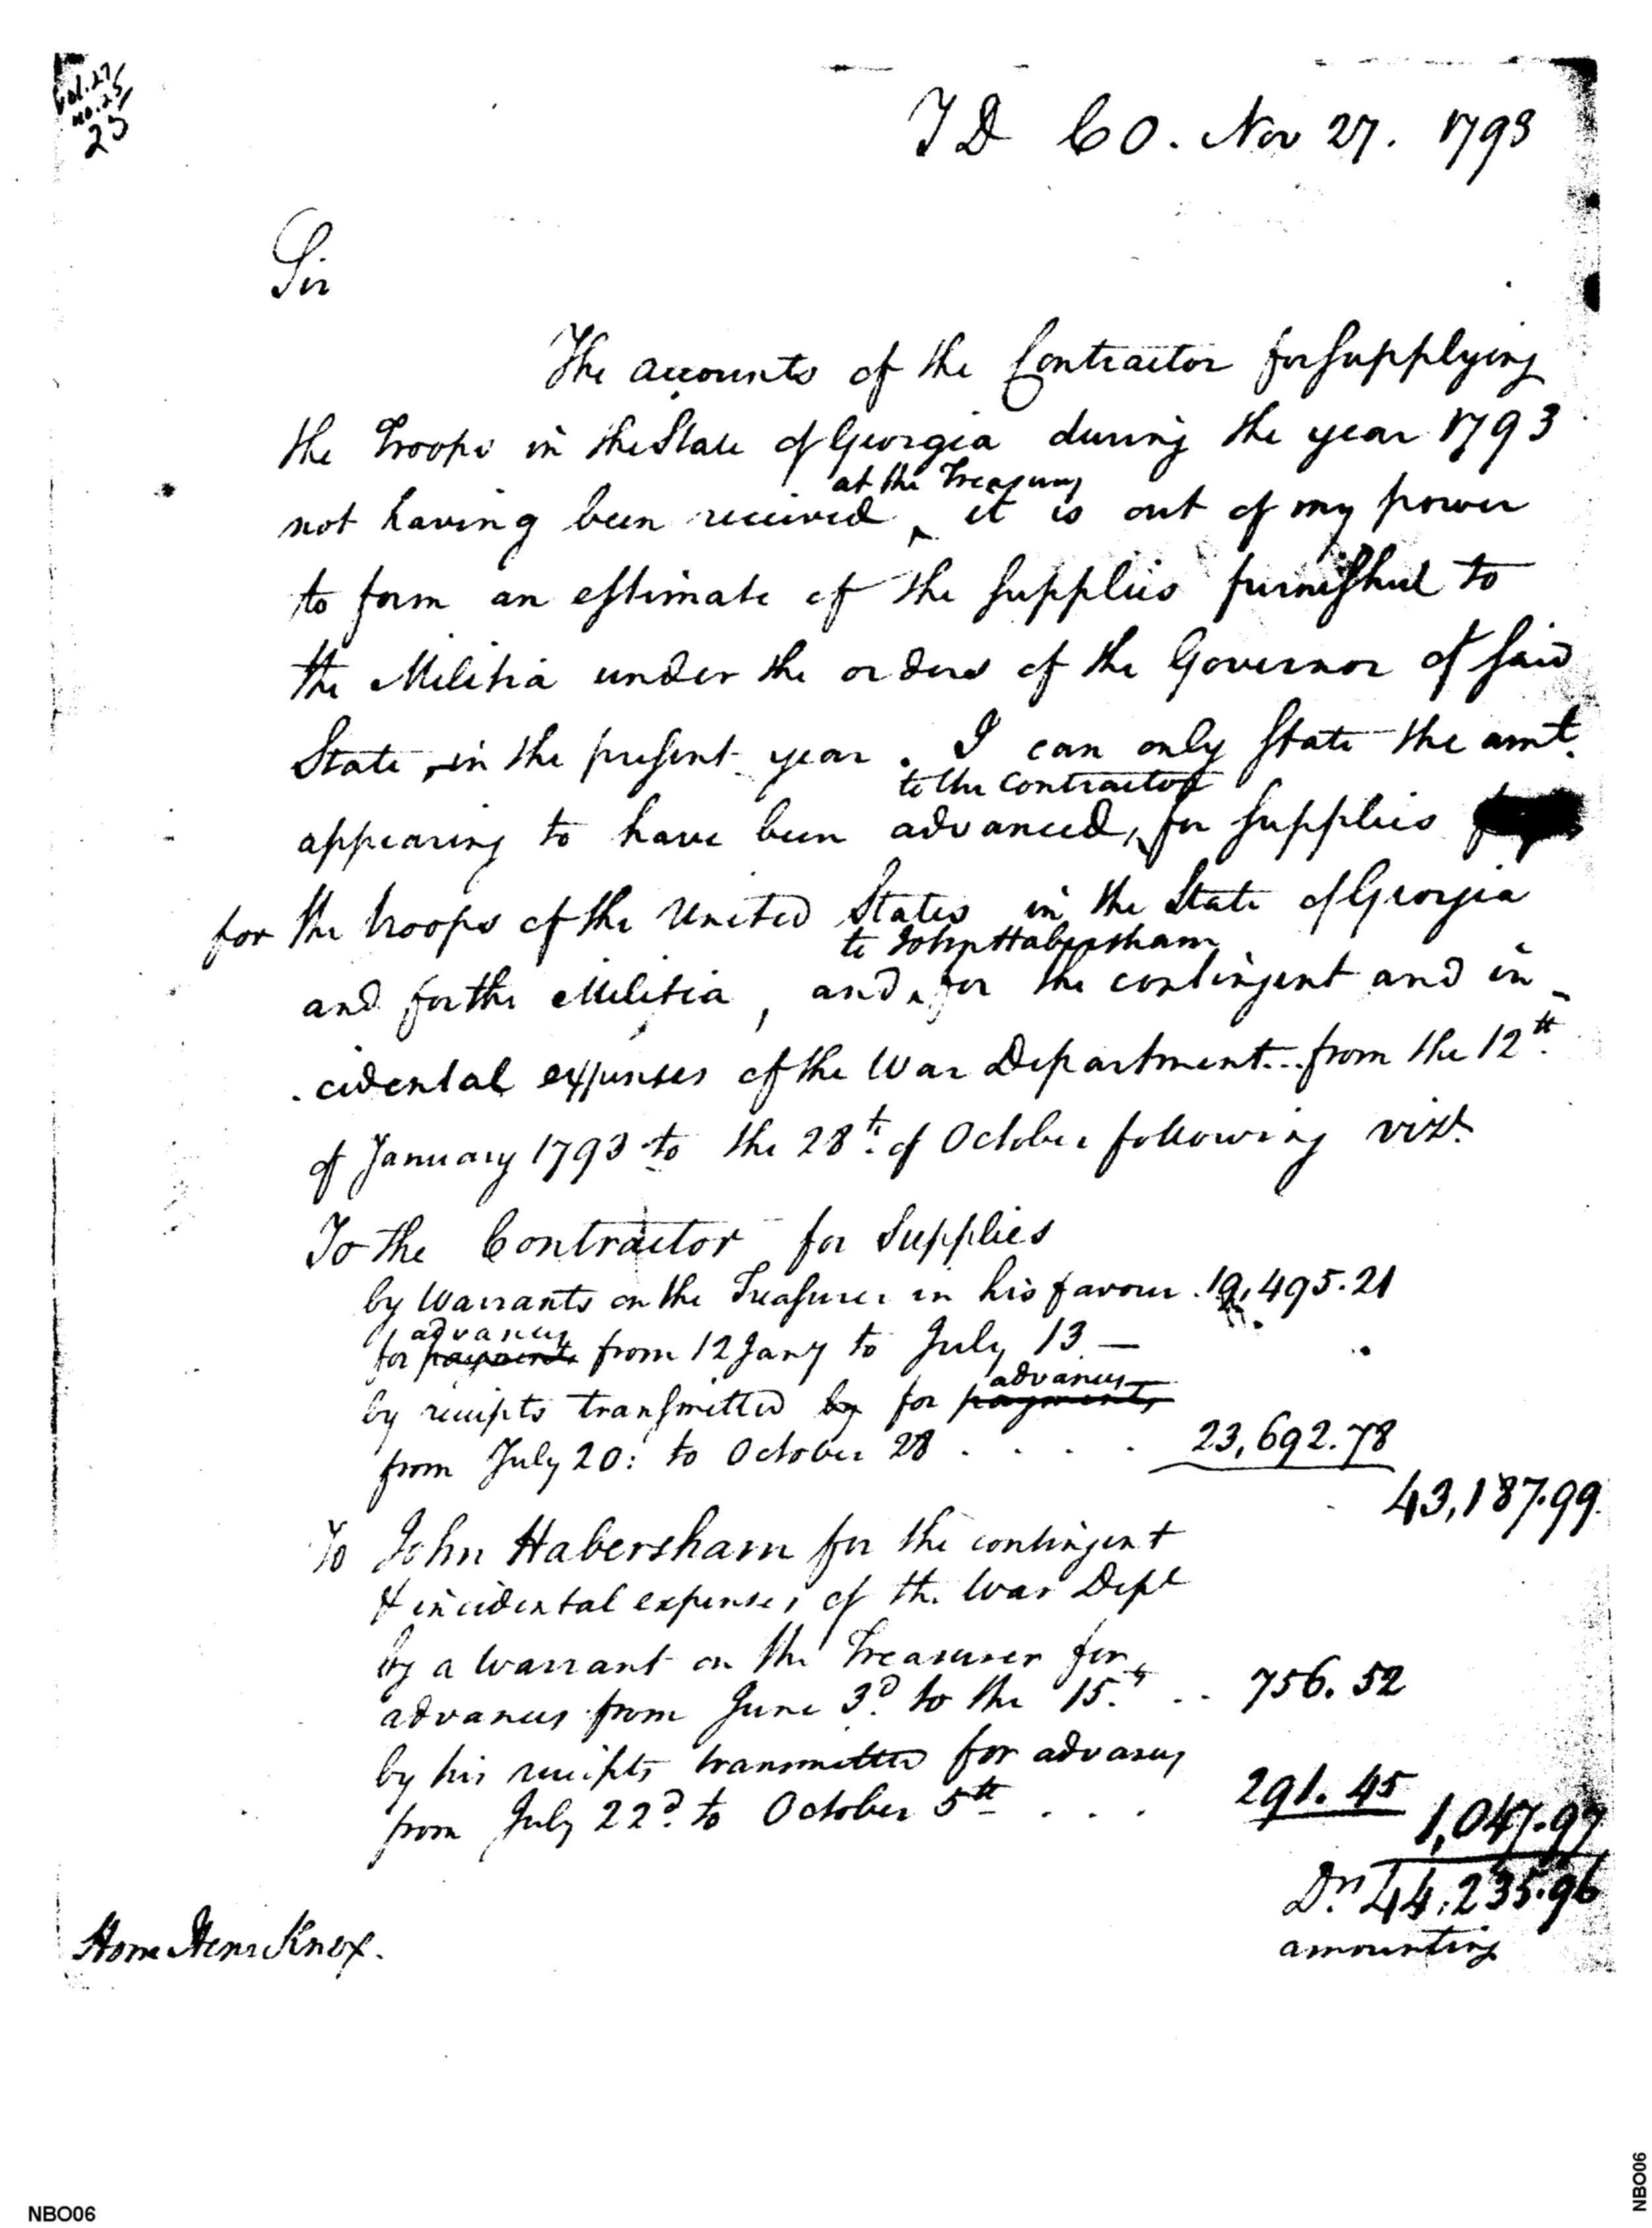 Vol. 27
no. 25
25
T D C O. Nov 27. 1793
Sir
The accounts of the Contractor for supplying
the Troops in the State of Georgia during the year 1793
at the Treasury
not having been received ‸ it is out of my power
to form an estimate of the supplies furnished to
the Militia under the orders of the Governor of said
State, in the present year. I can only state the amt.
to the Contractor
appearing to have been advanced, ‸ for supplies
for the troops of the United States in the State of Georgia
to John Habersham
and for the Militia, and ‸ for the contingent and in-
cidental expenses of the War Department.. from the 12th.
of January 1793 to the 28th. of October following vizt.
To the Contractor for Supplies
by Warrants on the Treasurer in his favour . 19,495.21
advances
for payments from 12 Jany to July 13 —
advances
by receipts transmitted by for payments
from July 20: to October 28 . . . . 23,692.78
43,187.99.
To John Habersham for the contingent
& incidental expenses of the War Dept
by a warrant on the Treasurer for
advances from June 3d. to the 15.th .. 756.52
by his receipts transmitted for advances
from July 22d. to October 5th . . . 291.45
1,047.97
Drs 44,235.96
amounting
Honr Henr Knox.
NBO06
NBO06